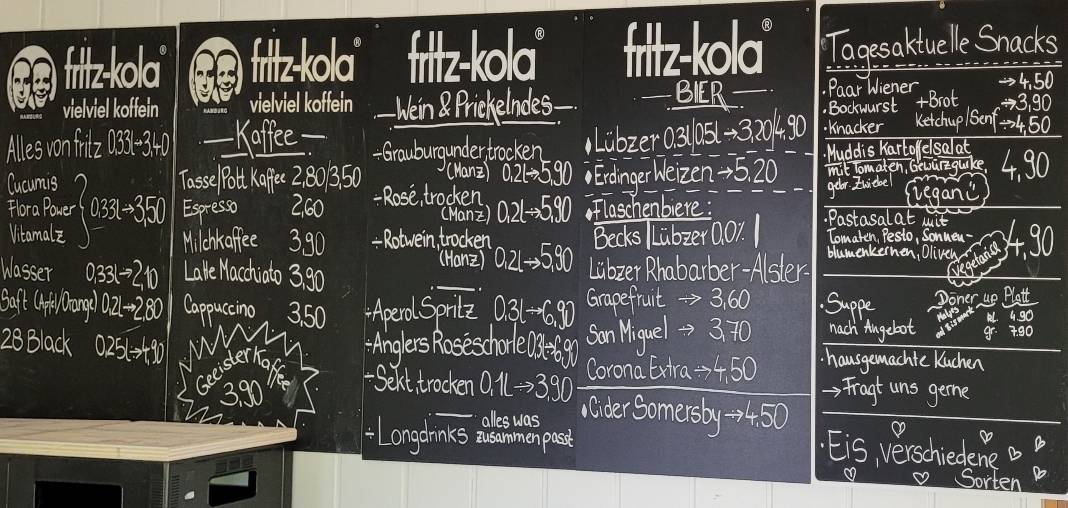 HAMBURG
fritz-kola®
vielviel koffein
Alles von fritz 0,33l→3,40
Cucumis
Flora Power } 0,33l→3,50
Vitamalz
Wasser 0,33l→2,10
Saft (Apfel/Orange) 0,2l→2,80
28 Black 0,25l→4,90
HAMBURG
fritz-kola®
vielviel koffein
Kaffee
Tasse/Pott Kaffee 2,80/3,50
Espresso 2,60
Milchkaffee 3,90
Latte Macchiato 3,90
Cappuccino 3,50
Geeister Kaffee
3,90
fritz-kola®
Wein & Prickelndes
Grauburgunder, trocken
(Manz) 0,2l→5,90
Rosé, trocken
(Manz) 0,2l→5,90
Rotwein, trocken
(Manz) 0,2l→5,90
Aperol Spritz 0,3l→6,90
Anglers Roséschorle 0,3l→6,90
Sekt, trocken 0,1l→3,90
Longdrinks alles was
zusammen passt
fritz-kola®
BIER
Lübzer 0,3l/0,5l→3,20/4,90
Erdinger Weizen→5,20
Flaschenbiere:
Becks | Lübzer 0,0% |
Lübzer Rhabarber-Alster-
Grapefruit → 3,60
San Miguel → 3,70
Corona Extra→4,50
Cider Somersby→4.50
Tagesaktuelle Snacks
Paar Wiener →4,50
Bockwurst +Brot →3,90
Knacker Ketchup/Senf→4,50
Muddis Kartoffelsalat
mit Tomaten, Gewürzgurke,
gebr. Zwiebel 4,90
vegan
Pastasalat mit
Tomaten, Pesto, Sonnen-
blumenkernen, Oliven 4,90
vegetarisch
Suppe
nach Angebot
Döner up Platt
kl. 4.90
gr. 7.90
hausgemachte Kuchen
→Fragt uns gerne
Eis, verschiedene
Sorten